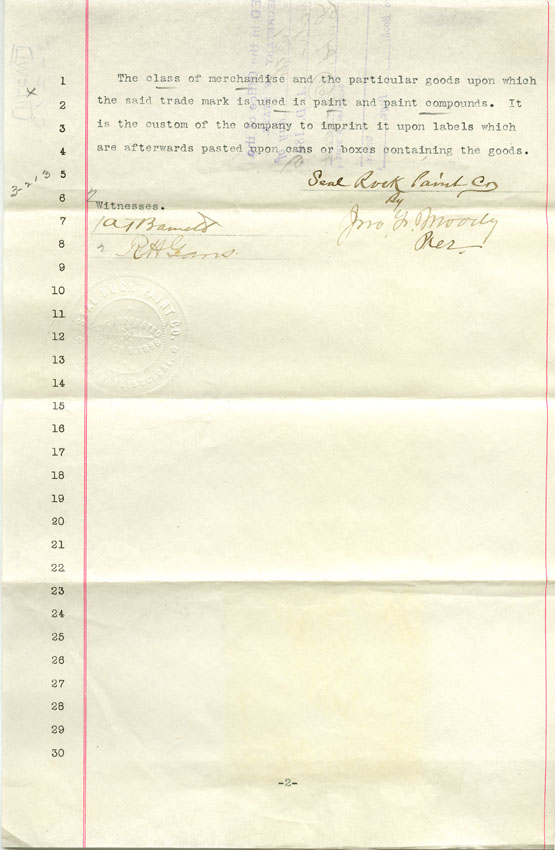 1 The class of merchandise and the particular goods upon which
2 the said trade mark is used is paint and paint compounds. It
3 is the custom of the company to imprint it upon labels which
4 are afterwards pasted upon cans or boxes containing the goods.
5 Seal Rock Paint Co
6 Witnesses. By
7 Jno L. Moody
8 Pres.
9
10
11
12
13
14
15
16
17
18
19
20
21
22
23
24
25
26
27
28
29
30
-2-